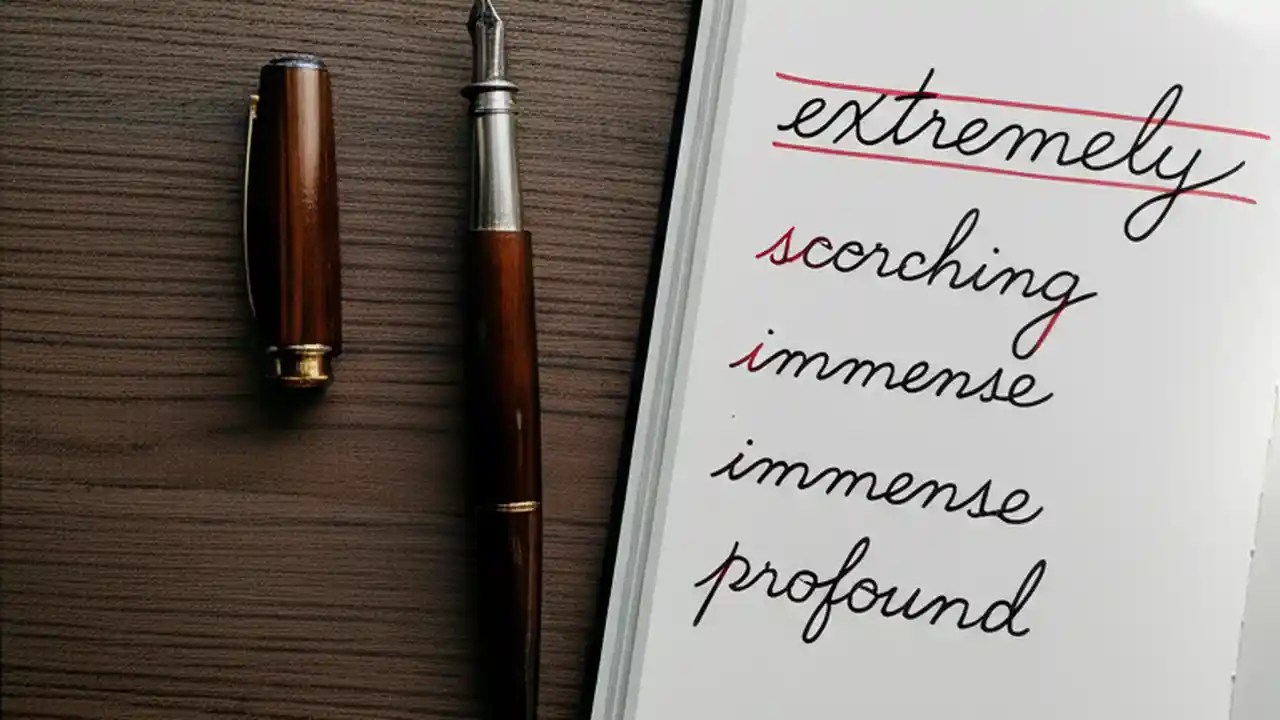 extremely
scorching
immense
immense
profound